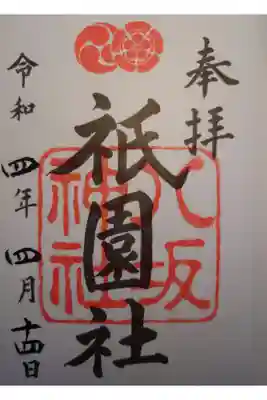 奉拝
八坂
神社
祇園社
令和四年四月十四日